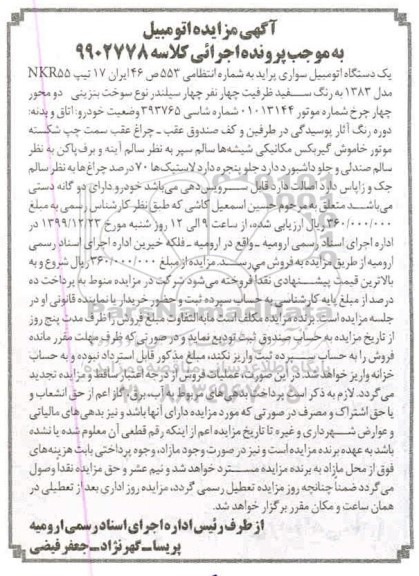 آگهی مزایده اتومبیل
به موجب پرونده اجرائی کلاسه ۹۹۰۲۷۷۸
یک دستگاه اتومبیل سواری پراید به شماره انتظامی ۵۵۳ ص ۴۶ ایران ۱۷ تیپ NKR۵۵
مدل ۱۳۸۳ به رنگ سفید ظرفیت چهار نفر چهار سیلندر نوع سوخت بنزینی دو محور
چهار چرخ شماره موتور ۰۱۰۱۳۱۴۴ شماره شاسی ۳۹۳۷۶۵ وضعیت خودرو: اتاق و بدنه:
دوره رنگ آثار پوسیدگی در طرفین و کف صندوق عقب ـ چراغ عقب سمت چپ شکسته
موتور خاموش گیربکس مکانیکی شیشه‌ها سالم سپر به نظر سالم آینه و برف پاکن به نظر
سالم صندلی و جلو داشبورد دارد جلو پنجره دارد لاستیک‌ها ۷۰ درصد چراغ‌ها به نظر سالم
جک و زاپاس دارد اصالت دارد قابل سرویس دهی می‌باشد خودرو دارای دوگانه دستی
می‌باشد متعلق به مرحوم حسین اسمعیل کاشی که طبق نظر کارشناس رسمی به مبلغ
۳۶۰/۰۰۰/۰۰۰ ریال ارزیابی شده، از ساعت ۹ الی ۱۲ روز شنبه مورخ ۱۳۹۹/۱۲/۲۳ در
اداره اجرای اسناد رسمی ارومیه ـ واقع در ارومیه ـ فلکه خیرین اداره اجرای اسناد رسمی
ارومیه از طریق مزایده به فروش می‌رسد. مزایده از مبلغ ۳۶۰/۰۰۰/۰۰۰ ریال شروع و به
بالاترین قیمت پیشنهادی نقدا فروخته می‌شود شرکت در مزایده منوط به پرداخت ده
درصد از مبلغ پایه کارشناسی به حساب سپرده ثبت و حضور خریدار یا نماینده قانونی او در
جلسه مزایده است. برنده مزایده مکلف است مابه‌التفاوت مبلغ فروش را ظرف مدت پنج روز
از تاریخ مزایده به حساب صندوق ثبت تودیع نماید و در صورتی که ظرف مهلت مقرر مانده
فروش را به حساب سپرده ثبت واریز نکند، مبلغ مذکور قابل استرداد نبوده و به حساب
خزانه واریز خواهد شد. در این صورت، عملیات فروش از درجه اعتبار ساقط و مزایده تجدید
می‌گردد. لازم به ذکر است پرداخت بدهی‌های مربوط به آب، برق، گاز اعم از حق انشعاب و
یا حق اشتراک و مصرف در صورتی که مورد مزایده دارای آنها باشد و نیز بدهی های مالیاتی
و عوارض شهرداری و غیره تا تاریخ مزایده اعم از اینکه رقم قطعی آن معلوم شده یا نشده
باشد به عهده برنده مزایده است و نیز در صورت وجود مازاد، وجوه پرداختی بابت هزینه‌های
فوق از محل مازاد به برنده مزایده مسترد خواهد شد و نیم عشر و حق مزایده نقدا وصول
می‌گردد ضمناً چنانچه روز مزایده تعطیل رسمی گردد، مزایده روز اداری بعد از تعطیلی در
همان ساعت و مکان مقرر برگزار خواهد شد.
از طرف رئیس اداره اجرای اسناد رسمی ارومیه
پریسا ـ گهرنژاد ـ جعفر فیضی